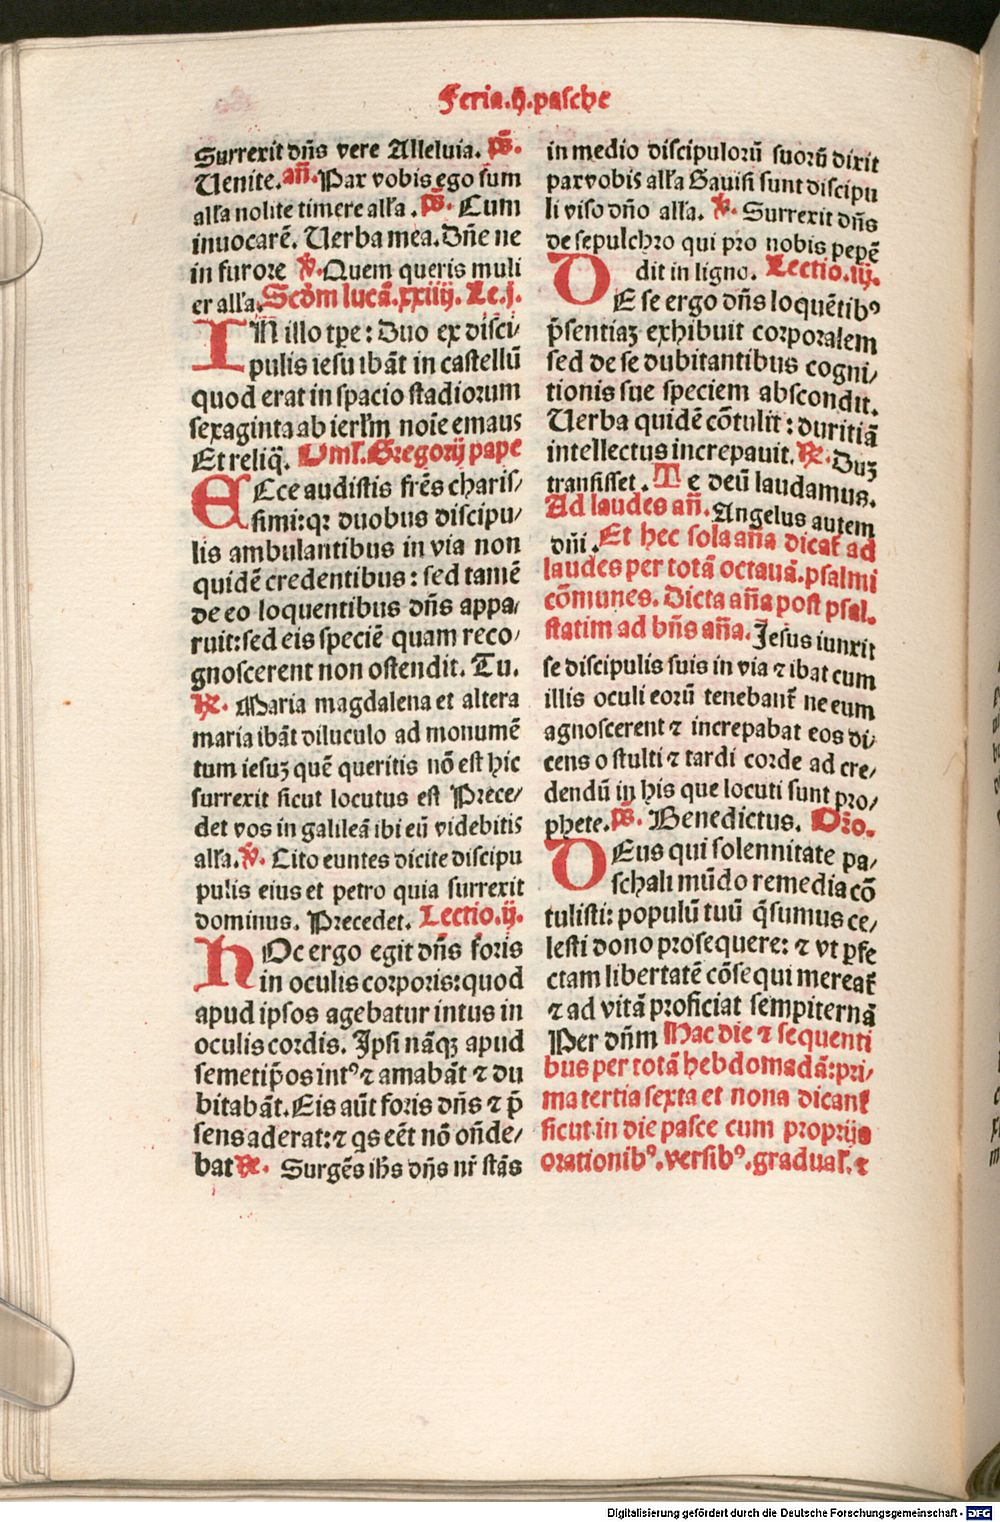 Feria.ij.pasche
Surrexit dn̄s vere Alleluia. ps̄.
Uenite. an̄. Pax vobis ego sum
alľa nolite timere alľa. ps̄. Cum
inuocarē. Uerba mea. Dn̄e ne
in furore ℣. Quem queris muli
er alľa. Scd̄m lucā.xxiiij. Le.j.
IN illo tp̄e: Duo ex disci/
pulis iesu ibāt in castellū
quod erat in spacio stadiorum
sexaginta ab ierlm̄ noīe emaus
Et reliq̄. Omľ. Gregorij pape
ECce audistis frēs charis/
simi: qꝛ duobus discipu/
lis ambulantibus in via non
quidē credentibus: sed tamē
de eo loquentibus dn̄s appa/
ruit: sed eis speciē quam reco/
gnoscerent non ostendit. Tu.
℟. Maria magdalena et altera
maria ibāt diluculo ad monumē
tum iesuꝫ quē queritis nō est hic
surrexit sicut locutus est Prece/
det vos in galileā ibi eū videbitis
alľa. ℣. Cito euntes dicite discipu
pulis eius et petro quia surrexit
dominus. Precedet. Lectio.ij.
HOc ergo egit dn̄s foris
in oculis corporis: quod
apud ipsos agebatur intus in
oculis cordis. Ipsi nāqꝫ apud
semetip̄os intꝰ ⁊ amabāt ⁊ du
bitabāt. Eis aūt foris dn̄s ⁊ p̄
sens aderat: ⁊ qs eēt nō on̄de/
bat ℟. Surgēs ih̄s dn̄s nr̄ stās
in medio discipulorū suorū dixit
pax vobis alľa Gauisi sunt discipu
li viso dn̄o alľa. ℣. Surrexit dn̄s
de sepulchro qui pro nobis pepē
dit in ligno. Lectio.iij.
DE se ergo dn̄s loquētibꝰ
p̄sentiaꝫ exhibuit corporalem
sed de se dubitantibus cogni/
tionis sue speciem abscondit.
Uerba quidē cōtulit: duritiā
intellectus increpauit. ℟. Duꝫ
transisset. Te deū laudamus.
Ad laudes an̄. Angelus autem
dn̄i. Et hec sola an̄a dicat̄ ad
laudes per totā octauā. psalmi
cōmunes. Dicta an̄a post psal.
statim ad bn̄s an̄a. Jesus iunxit
se discipulis suis in via ⁊ ibat cum
illis oculi eorū tenebant̄ ne eum
agnoscerent ⁊ increpabat eos di/
cens o stulti ⁊ tardi corde ad cre/
dendū in his que locuti sunt pro/
phete. ps̄. Benedictus. Or̄o.
DEus qui solennitate pa/
schali mūdo remedia cō
tulisti: populū tuū q̄sumus ce/
lesti dono prosequere: ⁊ vt ꝑfe
ctam libertatē cōsequi mereat̄
⁊ ad vitā proficiat sempiternā
Per dn̄m Hac die ⁊ sequenti
bus per totā hebdomadā: pri/
ma tertia sexta et nona dicant̄
sicut in die pasce cum proprijs
orationibꝰ. versibꝰ. gradual̄. ⁊
Digitalisierung gefördert durch die Deutsche Forschungsgemeinschaft - DFG